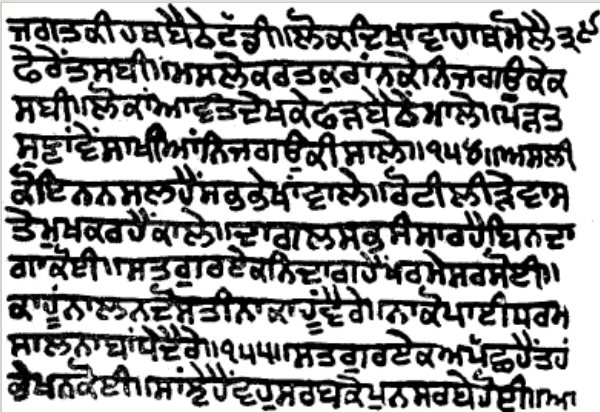 ਜਗਤਕੀਹਥਬੈਠੇਟੱਡੀ॥ਲੋਕਦਿਖਾਵਾਹਾਥਮੋਲੈ
ਫੇਰੇਂਤਸਬੀ॥ਅਸਲੋਕਰਤਕੁਰਾਂਨਕੋਨਿਜਗਊਕੇਕ
ਸਬੀ॥ਲੋਕਾਂਆਵਤਦੇਖਕੇਫੜਬੈਠੇਂਮਾਲੇ॥ਪੜਤ
ਸੁਣਾਂਵੇਂਸਾਖੀਆਂਨਿਜਗਊਕੀਸਾਲੇ॥੧੫੪॥ਅਸਲੀ
ਕੋਇਨਨਸਲਹੈਂਸਭਭੇਖਾਂਵਾਲੇ॥ਰੋਟੀਲੀੜੇਵਾਸ
ਤੇਮੁਖਕਰਹੈਂਕਾਲੇ॥ਦਾਗਲਸਭਸੰਸਾਰਹੈਬਿਨਦਾ
ਗਾਕੋਈ॥ਸਤਗੁਰਏਕਨਿਦਾਗਹੈਂਪਰਮੇਸਰਸੋਈ॥
ਕਾਹੂੰਨਾਲਨਦੋਸਤੀਨਾਕਾਹੂੰਵੈਰੇ॥ਨਾਕੋਪਾਈਧਰਮ
ਸਾਲਨਾਬਾਂਧੇਦੈਰੇ॥੧੫੫॥ਸਤਗੁਰਏਕਅਪੱਛਹੈਂਤਹਂ
ਭੇਖਨਕੋਈ॥ਸਾਂਝੇਹੈਂਵਹੁਸਰਬਕੇਪੁਨਸਰਬੇਹੋਈ॥ਆ